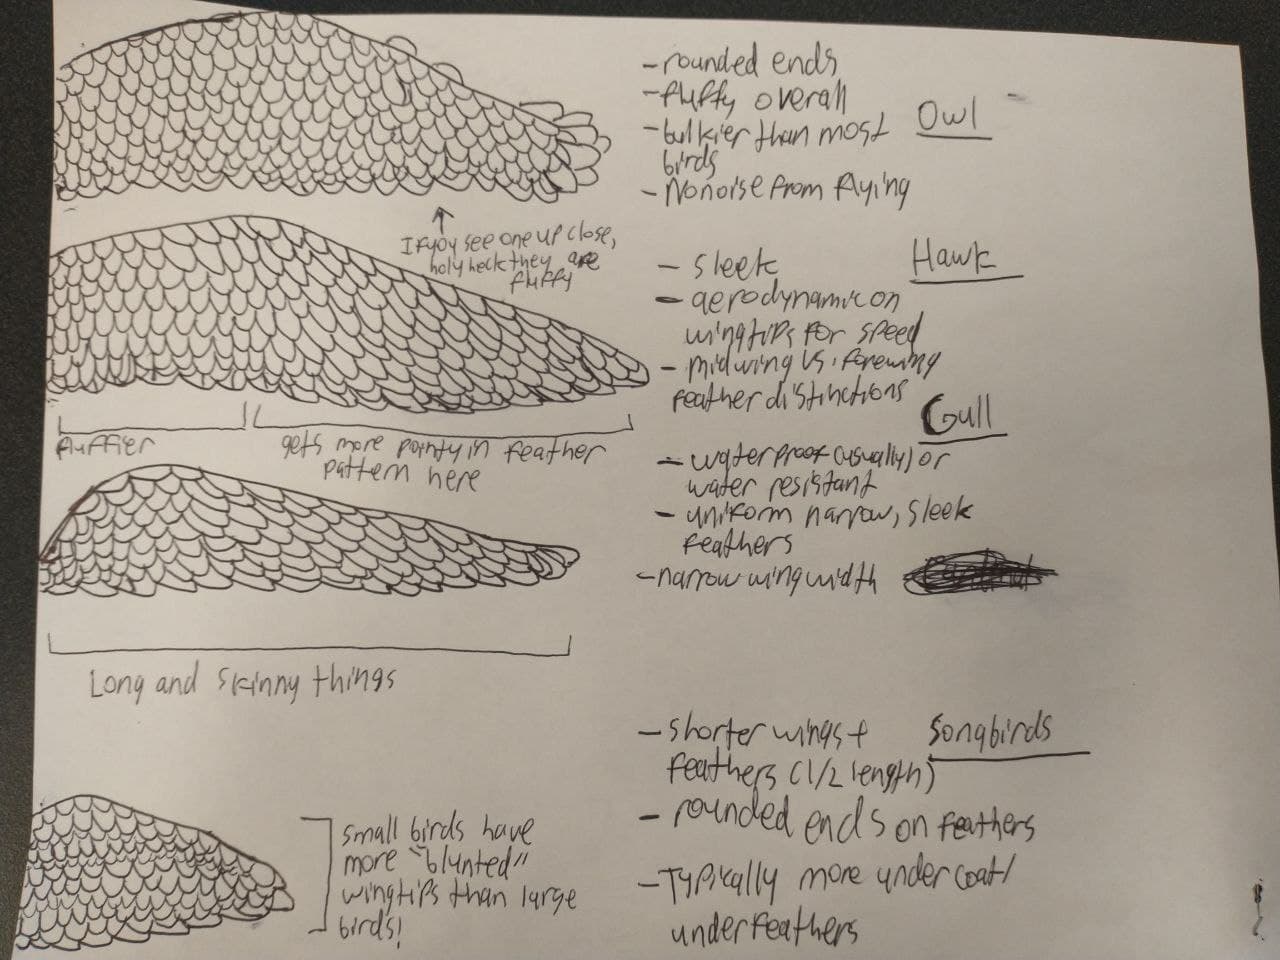 - rounded ends
- fluffy overall
Owl
- bulkier than most
birds
- No noise from flying
If you see one up close,
holy heck they are
fluffy
Hawk
- sleek
- aerodynamic on
wingtips for speed
- midwing vs. forewing
feather distinctions
fluffier
gets more pointy in feather
pattern here
Gull
- waterproof (usually) or
water resistant
- uniform narrow, sleek
feathers
- narrow wing width
Long and skinny things
Songbirds
- shorter wings +
feathers (1/2 length)
- rounded ends on feathers
- Typically more undercoat/
underfeathers
small birds have
more "blunted"
wingtips than large
birds!